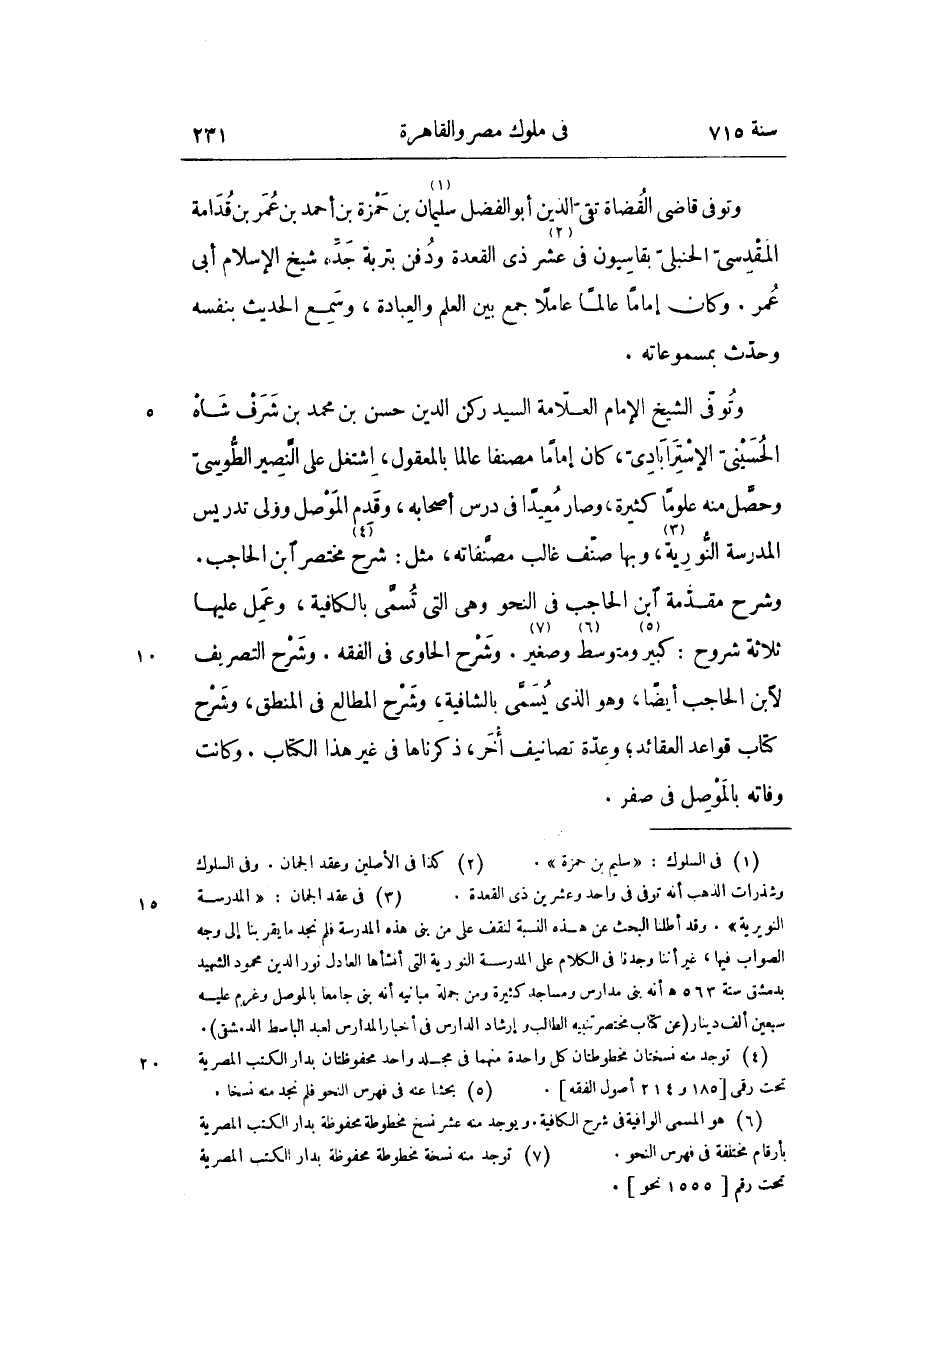 سنة ٧١٥ فى ملوك مصر والقاهرة ٢٣١
(١)
وتوفى قاضى القُضاة تقىّ الدين أبو الفضل سليمان بن حَمْزة بن أحمد بن عُمَر بن قُدَامة
(٢)
المَقْدِسىّ الحنبلىّ بقاسِيون فى عشر ذى القعدة ودُفن بتربة جَدِّه شيخ الإسلام أبى
عُمر . وكان إمامًا عالمًا عاملًا جمع بين العلم والعِبادة ، وسَمِع الحديث بنفسه
وحدّث بمسموعاته .
وتُوفّى الشيخ الإمام العلّامة السيد ركن الدين حسن بن محمد بن شَرَفْ شَاهْ ٥
الحُسَيْنىّ الإسْتَرَابَادِىّ، كان إمامًا مصنفا عالما بالمعقول، اشتغل على النَّصير الطُّوسىّ
وحصَّل منه علومًا كثيرة، وصار مُعِيدًا فى درس أصحابه ، وقَدِم المَوْصل وولى تدريس
(٣) (٤)
المدرسة النُّورية، وبها صنّف غالب مصنَّفاته، مثل : شرح مختصر آبن الحاجب .
وشرح مقدّمة آبن الحاجب فى النحو وهى التى تُسمَّى بالكافية ، وعَمِل عليها
(٥) (٦) (٧)
ثلاثة شروح : كبير ومتوسط وصغير . وشَرْح الحاوى فى الفقه . وشَرْح التصريف ١٠
لآبن الحاجب أيضًا، وهو الذى يُسَمَّى بالشافية، وشَرْح المطالع فى المنطق، وشَرْح
كتاب قواعد العقائد؛ وعِدّة تصانيف أُخَر، ذكرناها فى غير هذا الكتاب . وكانت
وفاته بالمَوْصِل فى صفر .
(١) فى السلوك : «سليم بن حمزة» . (٢) كذا فى الأصلين وعقد الجمان . وفى السلوك
وشذرات الذهب أنه توفى فى واحد وعشرين ذى القعدة . (٣) فى عقد الجمان : «المدرسة ١٥
النويرية» . وقد أطلنا البحث عن هذه النسبة لنقف على من بنى هذه المدرسة فلم نجد ما يقربنا إلى وجه
الصواب فيها، غير أننا وجدنا فى الكلام على المدرسة النورية التى أنشأها العادل نور الدين محمود الشهيد
بدمشق سنة ٥٦٣ ه أنه بنى مدارس ومساجد كثيرة ومن جملة مبانيه أنه بنى جامعا بالموصل وغرم عليه
سبعين ألف دينار (عن كتاب مختصر تنبيه الطالب وإرشاد الدارس فى أخبار المدارس لعبد الباسط الدمشقى).
(٤) توجد منه نسختان مخطوطتان كل واحدة منهما فى مجلد واحد محفوظتان بدار الكتب المصرية ٢٠
تحت رقمى [١٨٥ و ٢١٤ أصول الفقه] . (٥) بحثنا عنه فى فهرس النحو فلم نجد منه نسخا .
(٦) هو المسمى الوافية فى شرح الكافية . ويوجد منه عشر نسخ مخطوطة محفوظة بدار الكتب المصرية
بأرقام مختلفة فى فهرس النحو . (٧) توجد منه نسخة مخطوطة محفوظة بدار الكتب المصرية
تحت رقم [١٥٥٥ نحو] .